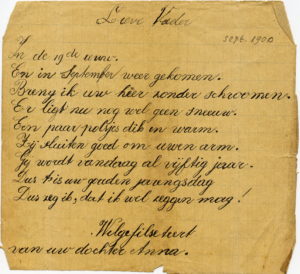 Lieve Vader
sept. 1900
In de 19de eeuw.
En in September weer gekomen.
Breng ik uw hier zonder schroomen.
Er ligt nu nog wel geen sneeuw.
Een paar polsjes dik en warm.
Zij sluiten goed om uwen arm.
Gij wordt vandaag al vijftig jaar.
Dus t is uw gouden jaringsdag
Dus zeg ik, dat ik wel zeggen mag!
Welgefilseteert
van uw dochter Anna.